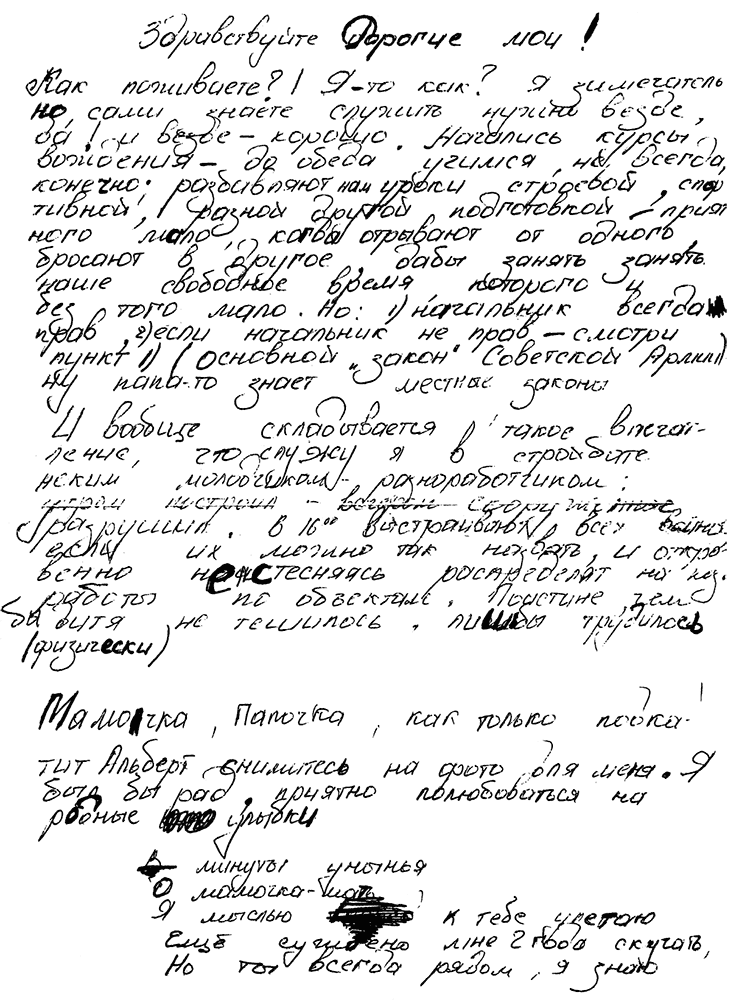 Здравствуйте Дорогие мои!
Как поживаете?! Я-то как? Я зимечатель
но, сами знаете служить нужно везде,
да! и везде – хорошо. Начались курсы
вождения – до обеда учимся, не всегда,
конечно: разбавляют нам уроки строевой, спор
тивной, разной другой подготовкой – прият
ного мало, когда отрывают от одного,
бросают в другое, дабы занять занять
наше свободное время, которого и
без того мало. Но: 1) начальник всегда
прав, 2) если начальник не прав – смотри
пункт 1) (Основной „закон" Советской Армии)
Ну папа-то знает местные законы
И вообще складывается такое впечат-
ление, что служу я в стройбате
неким молодчиком - разноработчиком:
утром построил - вечером
разрушил. В 16⁰⁰ выстраивают всех
если их можно так назвать, и откро-
венно не стесняясь распределят на
работы по объектам. Поистине, чем
бы дитя не тешилось, лишь бы трудилось
(физически)
Мамочка, Папочка, как только подка-
тит Альберт снимитесь на фото для меня. Я
был бы рад, приятно полюбоваться на
родные улыбки
В минуты унынья
О мамочка-мать
Я мыслью к тебе улетаю
Ещё суждено мне 2 года скучать,
Но ты всегда рядом, я знаю